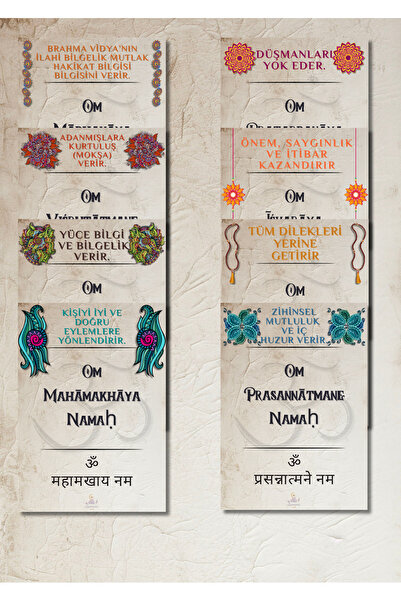 BRAHMA VİDYA'NIN
İLAHİ BİLGELİK MUTLAK
HAKİKAT BİLGİSİ
BİLGİSİNİ VERİR.
Om
ADANMIŞLARA
KURTULUŞ
(MOKŞA)
VERİR.
Om
YÜCE BİLGİ
VE BİLGELİK
VERİR.
Om
KİŞİYİ İYİ VE
DOĞRU
EYLEMLERE
YÖNLENDİRİR.
Om
Mahāmakhāya
Namaḥ
ॐ
महामखाय नम
DÜŞMANLARI
YOK EDER.
Om
ÖNEM, SAYGINLIK
VE İTİBAR
KAZANDIRIR
Om
TÜM DİLEKLERİ
YERİNE
GETİRİR
Om
ZİHİNSEL
MUTLULUK
VE İÇ
HUZUR VERİR.
Om
Prasannātmane
Namaḥ
ॐ
प्रसन्नात्मने नम